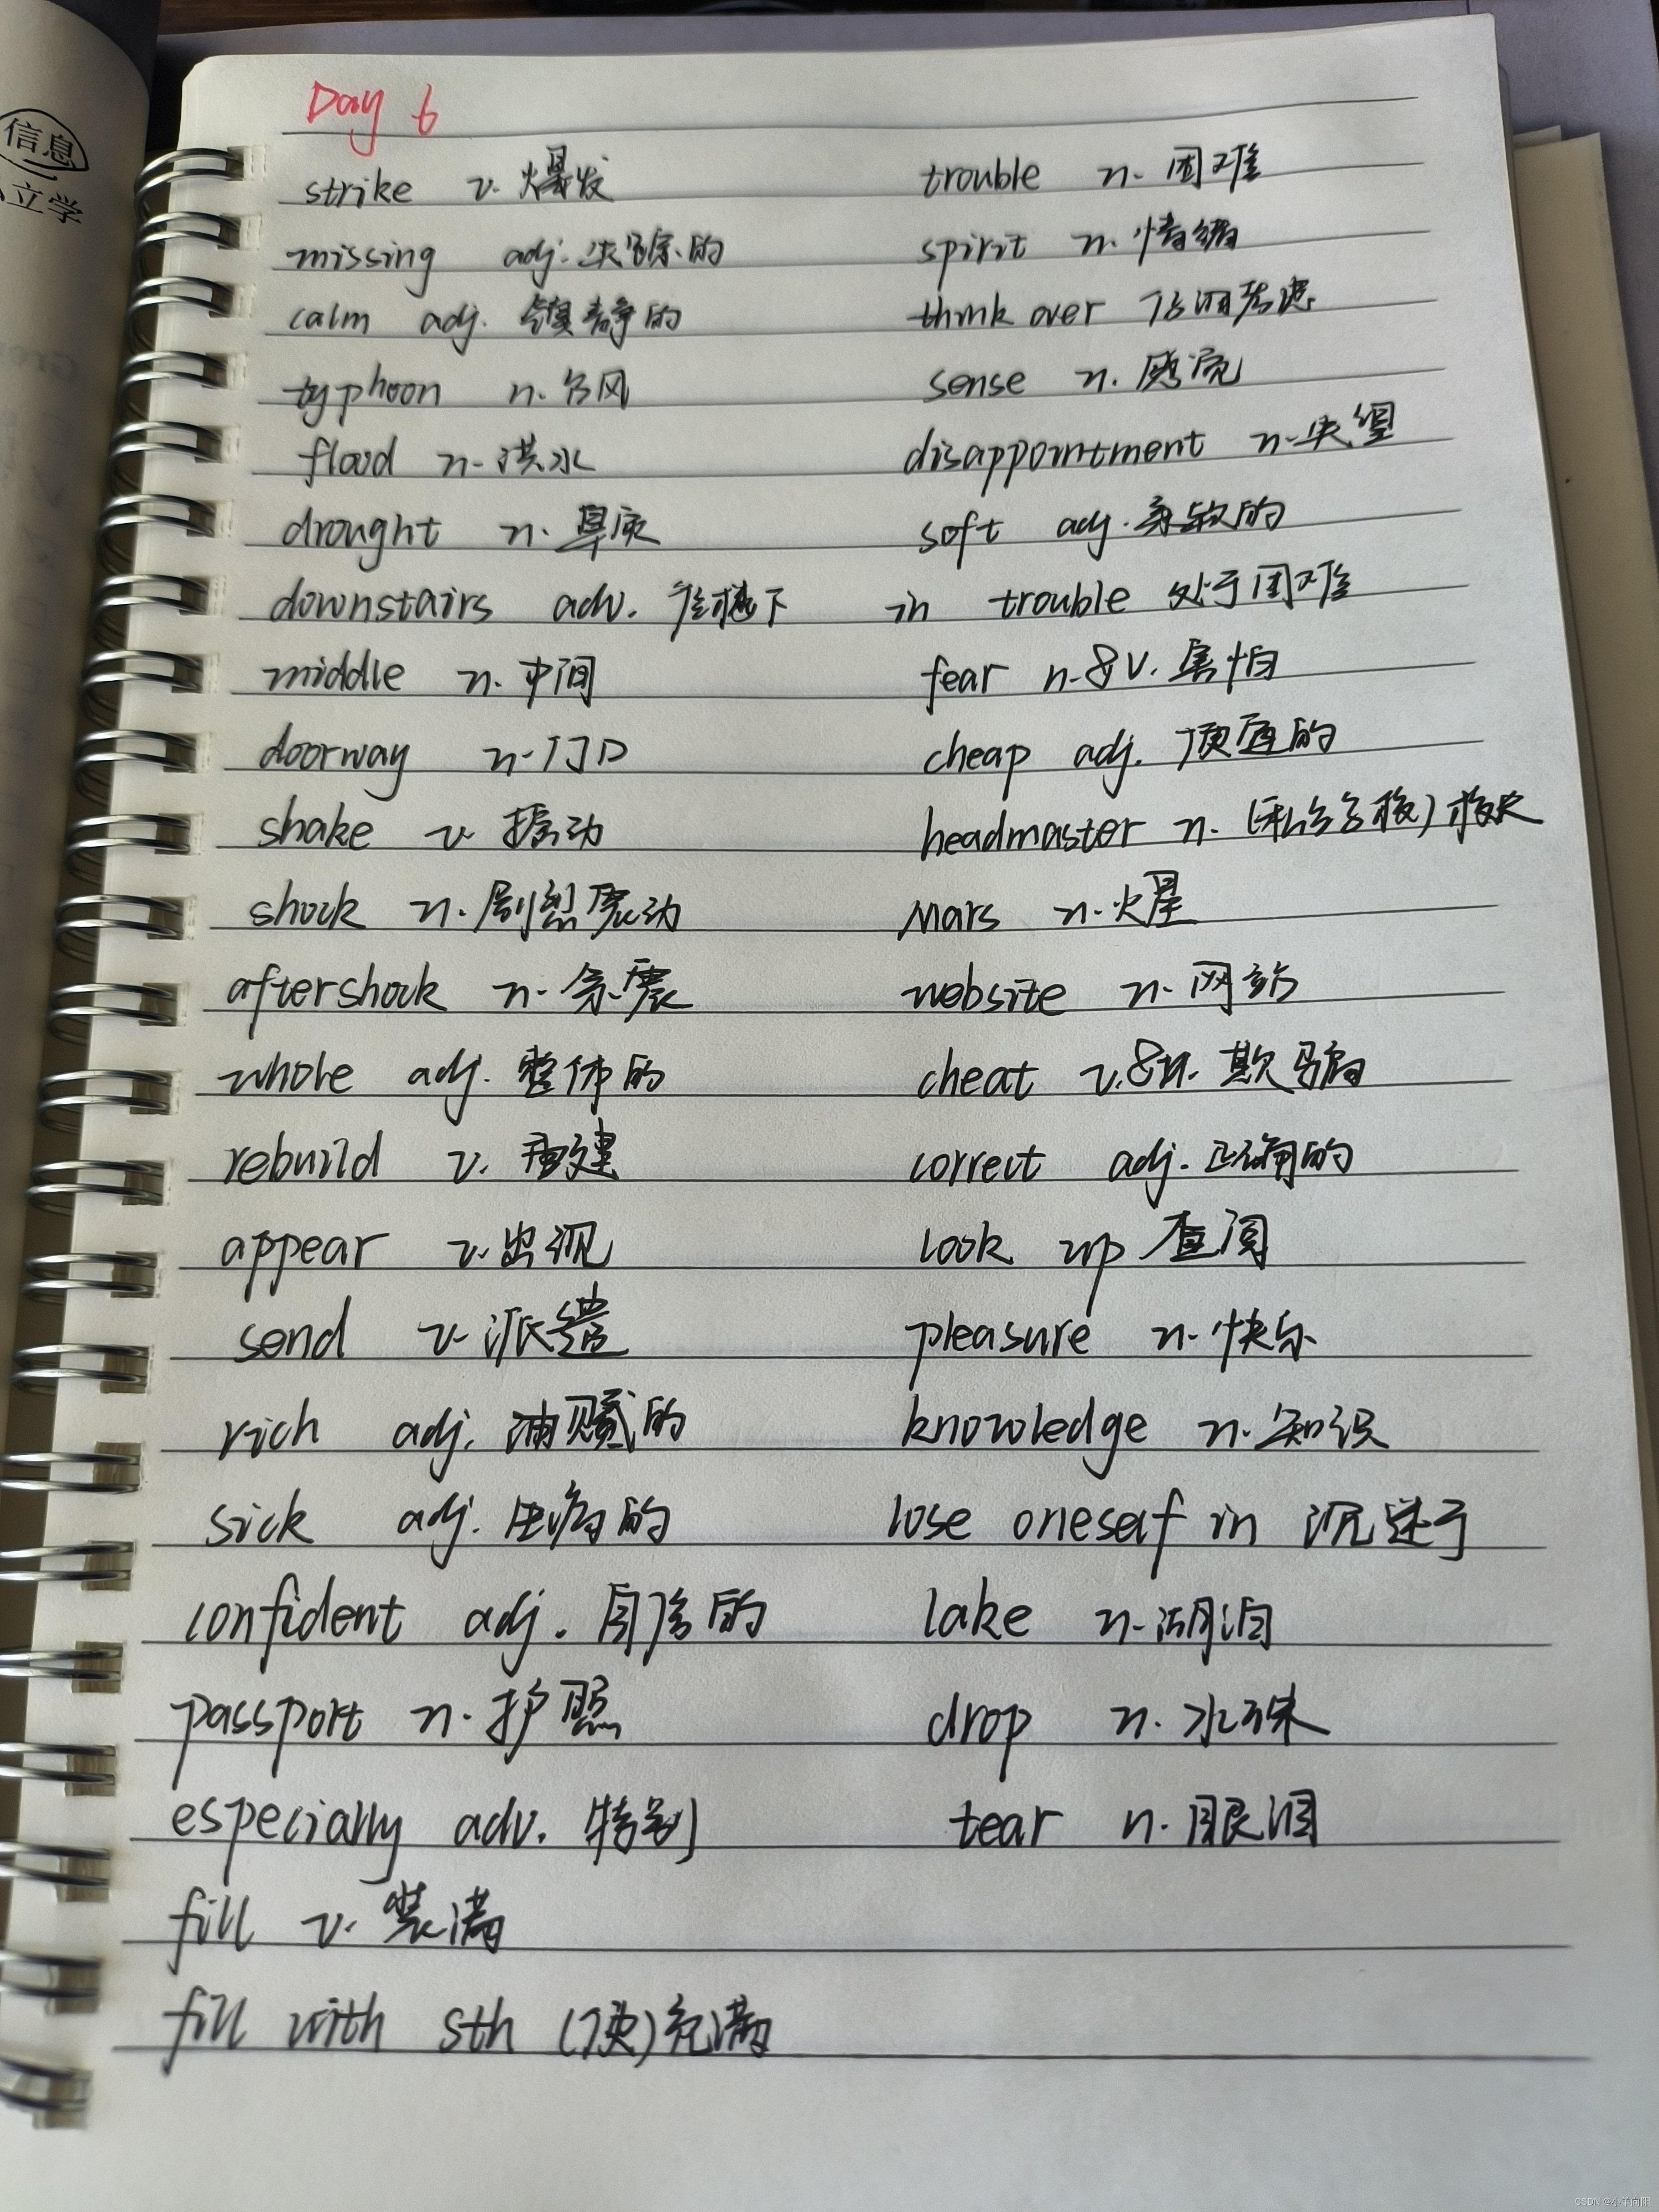 信息
立学
Day 6
strike v. 爆发
missing adj. 失踪的
calm adj. 镇静的
typhoon n. 台风
flood n. 洪水
drought n. 旱灾
downstairs adv. 往楼下
middle n. 中间
doorway n. 门口
shake v. 摇动
shock n. 剧烈震动
aftershock n. 余震
whole adj. 整体的
rebuild v. 重建
appear v. 出现
send v. 派遣
rich adj. 油腻的
sick adj. 生病的
confident adj. 自信的
passport n. 护照
especially adv. 特别
fill v. 装满
fill with sth (使)充满
trouble n. 困难
spirit n. 情绪
think over 仔细考虑
sense n. 感觉
disappointment n. 失望
soft adj. 柔软的
in trouble 处于困难
fear n.&v. 害怕
cheap adj. 便宜的
headmaster n. (私立学校)校长
Mars n. 火星
website n. 网站
cheat v.&n. 欺骗
correct adj. 正确的
look up 查阅
pleasure n. 快乐
knowledge n. 知识
lose oneself in 沉迷于
lake n. 湖泊
drop n. 水珠
tear n. 眼泪
CSDN @小羊向阳